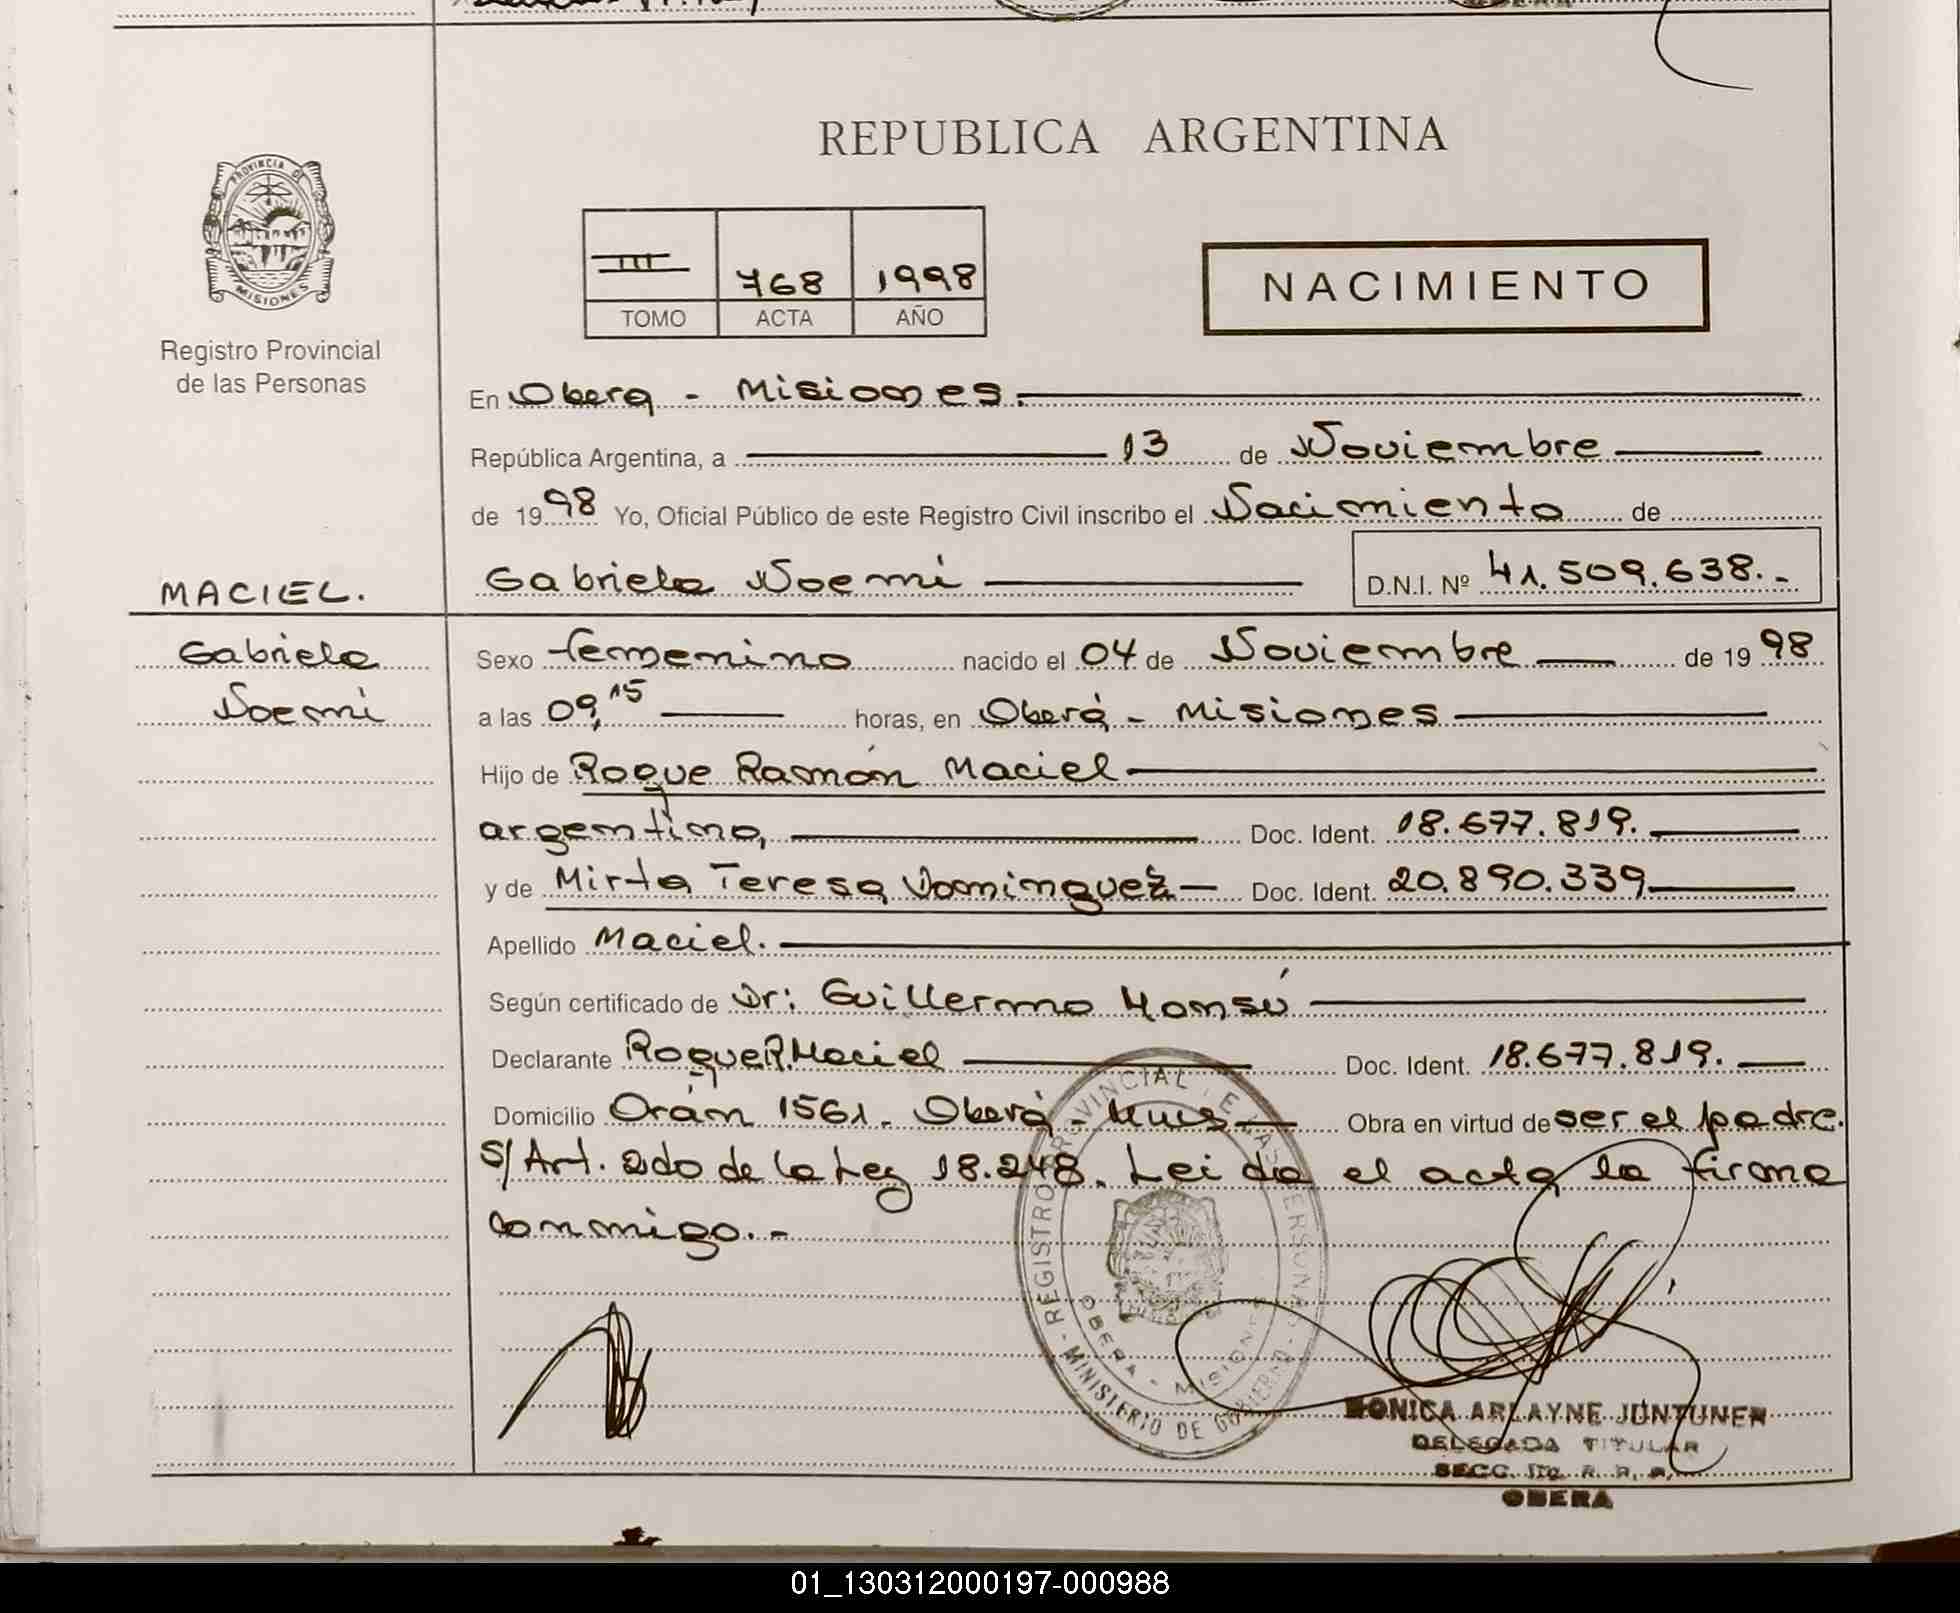 REPUBLICA ARGENTINA
PROVINCIA DE
MISIONES
Registro Provincial
de las Personas
III 768 1998
TOMO ACTA AÑO
NACIMIENTO
En Obera - Misiones.
República Argentina, a 13 de Noviembre
de 1998 Yo, Oficial Público de este Registro Civil inscribo el Nacimiento de
MACIEL.
Gabriela Noemi
Gabriela Noemi D.N.I. Nº 41.509.638.-
Sexo femenino nacido el 04 de Noviembre de 1998
a las 09,15 horas, en Oberá - Misiones
Hijo de Roque Ramón Maciel
argentino, Doc. Ident. 18.677.819.
y de Mirta Teresa Dominguez Doc. Ident. 20.890.339
Apellido Maciel.
Según certificado de Dr: Guillermo Monsú
Declarante Roque R. Maciel Doc. Ident. 18.677.819.
Domicilio Orán 1561. Oberá - Mnes Obra en virtud de ser el padre.
S/ Art. 2do de la Ley 18.248. Leida el acta la firma
conmigo.-
REGISTRO PROVINCIAL DE LAS PERSONAS
OBERA - MISIONES
- MINISTERIO DE GOBIERNO -
MONICA ARLAYNE JUNTUNEN
DELEGADA TITULAR
SECC. R. P.
OBERA
01_130312000197-000988